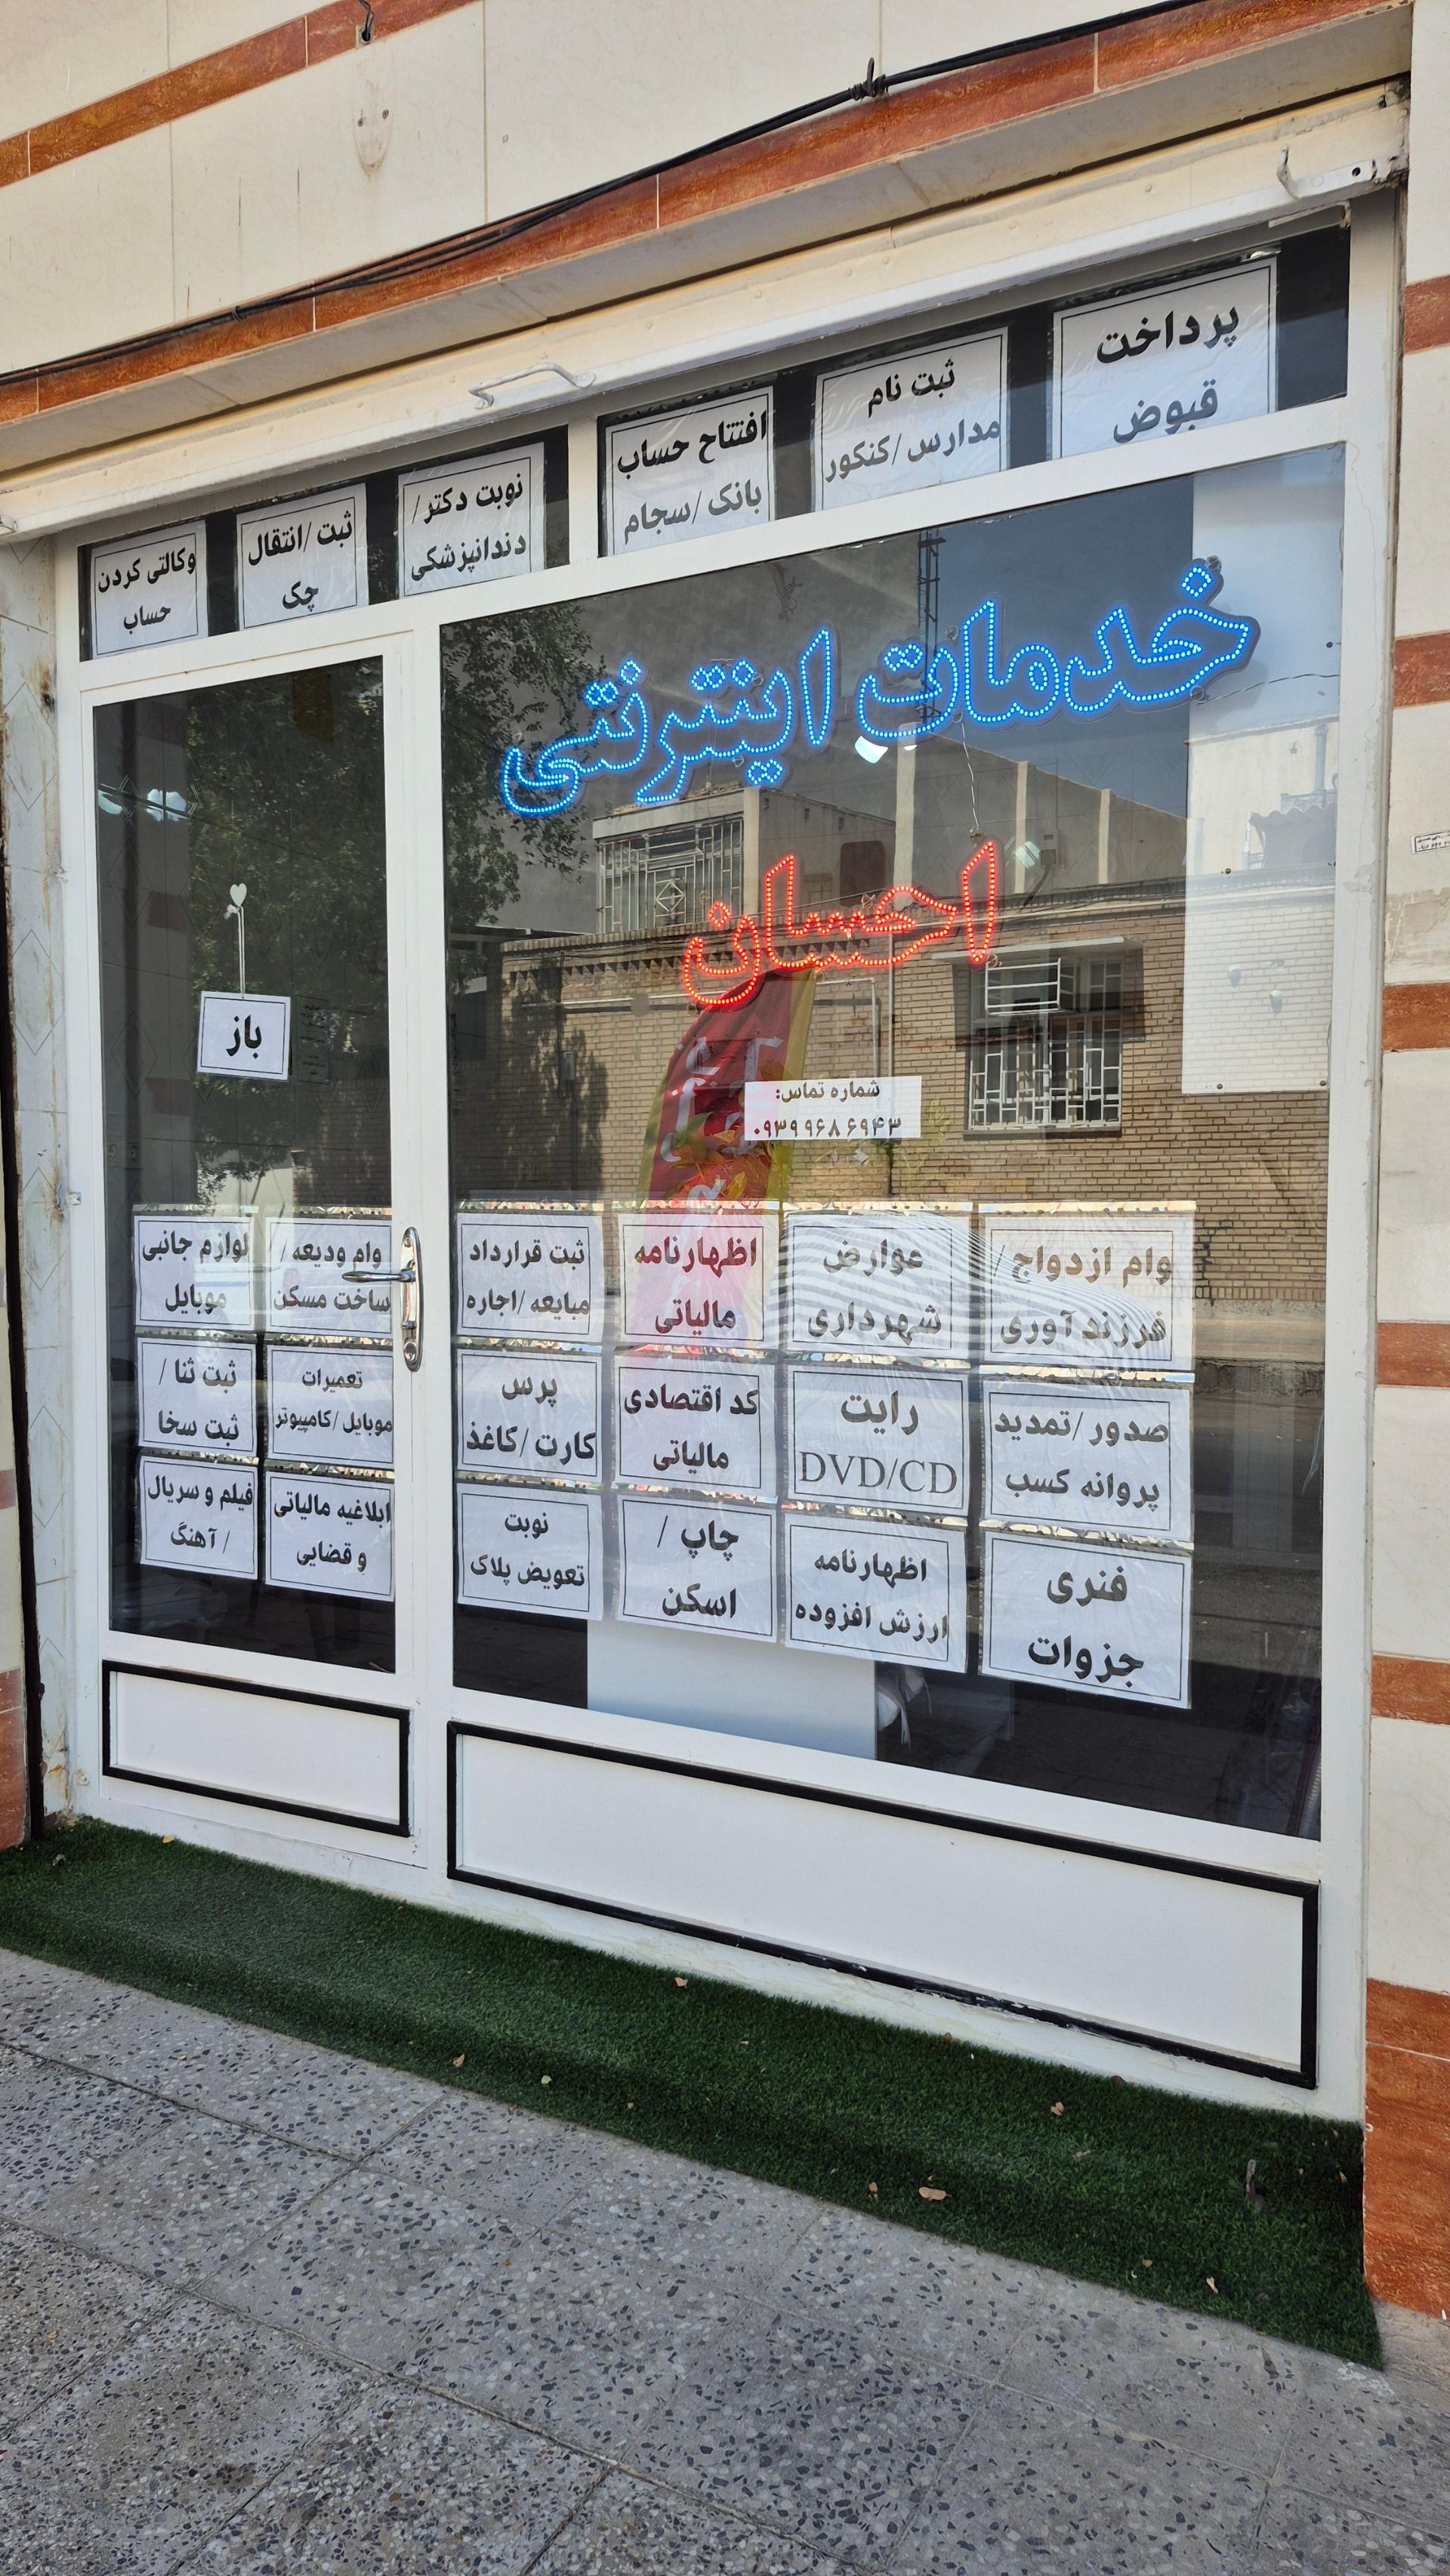 پرداخت
قبوض
ثبت نام
مدارس/کنکور
افتتاح حساب
بانک/سجام
نوبت دکتر/
دندانپزشکی
ثبت/انتقال
چک
وکالتی کردن
حساب
خدمات اینترنتی
احسان
باز
شماره تماس:
۰۹۳۹ ۹۶۸ ۶۹۴۳
وام ازدواج/
فرزندآوری
عوارض
شهرداری
اظهارنامه
مالیاتی
ثبت قرارداد
مبایعه/اجاره
وام ودیعه/
ساخت مسکن
لوازم جانبی
موبایل
صدور/تمدید
پروانه کسب
رایت
DVD/CD
کد اقتصادی
مالیاتی
پرس
کارت/کاغذ
تعمیرات
موبایل/کامپیوتر
ثبت ثنا/
ثبت سخا
فنری
جزوات
اظهارنامه
ارزش افزوده
چاپ/
اسکن
نوبت
تعویض پلاک
ابلاغیه مالیاتی
و قضایی
فیلم و سریال
/آهنگ